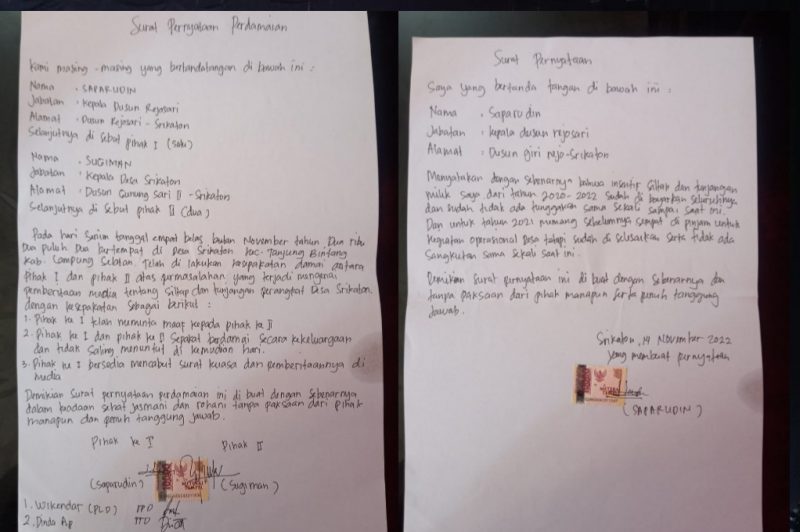 Surat Pernyataan Perdamaian
Kami masing-masing yang bertandatangan di bawah ini :
Nama : SAPARUDIN
Jabatan : Kepala Dusun Rejosari
Alamat : Dusun Rejosari - Srikaton
Selanjutnya di sebut pihak I (satu)
Nama : SUGIMAN
Jabatan : Kepala Desa Srikaton
Alamat : Dusun Gunung Sari II - Srikaton
Selanjutnya di sebut pihak II (dua)
Pada hari Senin tanggal empat belas bulan November tahun Dua ribu
Dua puluh Dua bertempat di Desa Srikaton Kec. Tanjung Bintang
Kab. Lampung Selatan. Telah di lakukan kesepakatan damai antara
Pihak I dan pihak II atas permasalahan yang terjadi mengenai
pemberitaan media tentang siltap dan tunjangan perangkat Desa Srikaton.
dengan kesepakatan sebagai berikut :
1. Pihak ke I telah meminta maaf kepada pihak ke II
2. Pihak ke I dan pihak ke II sepakat berdamai secara kekeluargaan
dan tidak saling menuntut di kemudian hari.
3. Pihak ke I bersedia mencabut surat kuasa dan pemberitaannya di
media
Demikian surat pernyataan perdamaian ini di buat dengan sebenarnya
dalam keadaan sehat jasmani dan rohani tanpa paksaan dari pihak
manapun dan penuh tanggung jawab.
Pihak ke I Pihak II
(saparudin) (Sugiman)
1. Wikendar (PLD) TTD
2. Dinda Ap TTD
Surat Pernyataan
Saya yang bertanda tangan di bawah ini :
Nama : Saparudin
Jabatan : Kepala dusun rejosari
Alamat : Dusun giri rejo-Srikaton
Menyatakan dengan sebenarnya bahwa insentif siltap dan tunjangan
milik saya dari tahun 2020-2022 sudah di bayarkan seluruhnya
dan sudah tidak ada tunggakan sama sekali sampai saat ini.
Dan untuk tahun 2021 memang sebelumnya sempat di pinjam untuk
kegiatan operasional Desa tetapi sudah di selesaikan serta tidak ada
sangkutan sama sekali saat ini.
Demikian surat pernyataan ini di buat dengan sebenarnya dan
tanpa paksaan dari pihak manapun serta penuh tanggung
jawab.
Srikaton, 14 November 2022
yang membuat pernyataan
(SAPARUDIN)